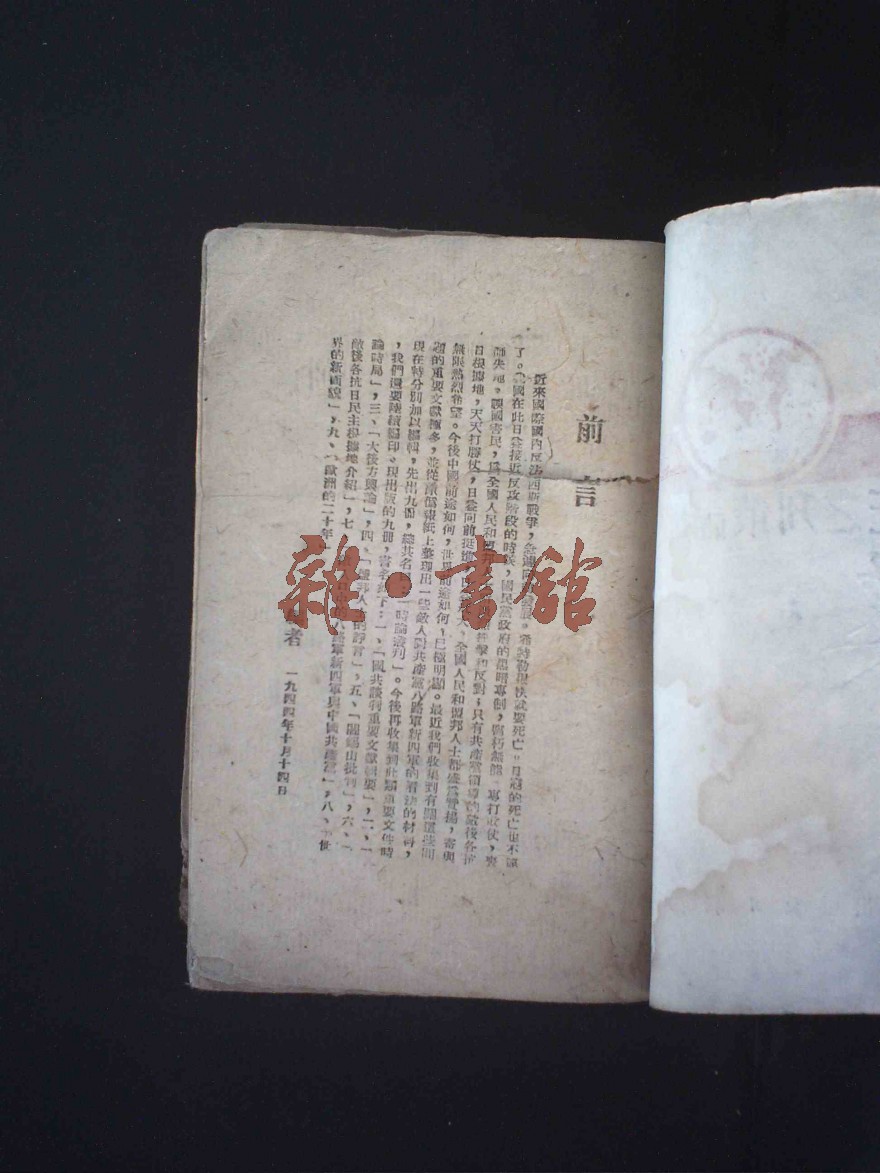 前言
近來國際國內反法西斯戰爭，急速向　發展。希特勒很快就要死亡。日寇的死亡也不遠
了。我國在此日益接近反攻階段的時候，國民黨政府的黑暗專制，腐朽無能，專打敗仗，喪
師失地，禍國害民，爲全國人民和盟邦　抨擊和反對；只有共產黨領導的敵後各抗
日根據地，天天打勝仗，日益向前挺進，　大，全國人民和盟邦人士都盛爲贊揚，寄與
無限熱烈希望。今後中國前途如何，世界前途如何，已極明顯。最近我們收集到有關這些問
題的重要文獻極多，並從敵僞報紙上整理出一些敵人對共產黨八路軍新四軍的看法的材料，
現在特分別加以編輯，先出九冊，總其名　「時論叢刊」。今後再收集到此類重要文件時
，我們還要陸續編印。現出版的九冊，書名如下：一、「國共談判重要文獻輯要」，二、「
論時局」，三、「大後方輿論」，四、「盟邦人士的諍言」，五、「閻錫山批判」，六、「
敵後各抗日民主根據地介紹」，七、「　八路軍新四軍與中國共產黨」，八、「世
界的新面貌」，九、「歐洲的二十年」
者　一九四四年十月十四日
雜·書館